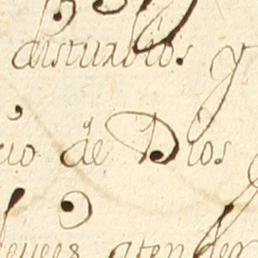 disturbios y
cio de Dios
atender